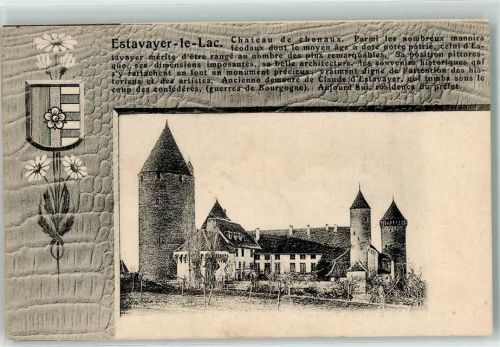 Estavayer-le-Lac. Chateau de chonaux. Parmi les nombreux manoirs
féodaux dont le moyen âge a doté notre patrie, celui d'Es-
tavayer mérite d'être rangé au nombre des plus remarquables. Sa position pittores-
que, ses dimensions imposantes, sa belle architecture, les souvenirs historiques qui
s'y rattachent en font un monument précieux, vraiment digne de l'attention des his-
toriens et des artistes. Ancienne demeure de Claude d'Estavayer, qui tomba sous le
coup des confédérés, (guerres de Bourgogne). Aujourd'hui, résidence du préfet.